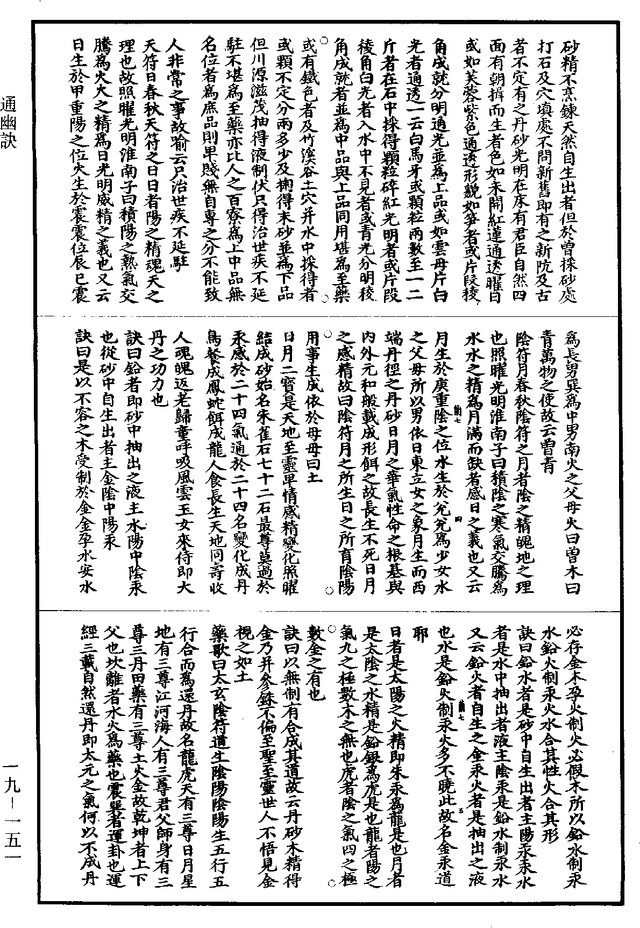 通幽訣
砂精不烹鍊天然自生出者但於曾採砂處
打石及穴墳處不問新舊即有之新阬及古
者不定有之丹砂光明在床有君臣自然四
面有朝揖而生者色如未開紅蓮通透曜日
或如芙蓉紫色通透形貌如笋者或片段稜
角成就分明通光並爲上品或如雲母片白
光者通透一二云白馬牙或顆粒兩數至一二
斤者在石中採得顆粒碎紅光明者或片段
稜角白光者入水中不見者或青光分明稜
角成就者並爲中品與上品同用堪爲至藥
或有鐵色者及竹溪谷土穴并水中採得者
或顆不定分兩多少及搠得末砂並爲下品
但川源滋茂抽得液制伏只得治世疾不延
駐不堪爲至藥亦比人之百寮爲上中品無
名位者爲庶品則卑賤無自專之分不能致
人非常之事故喻云只治世疾不延駐
天符日春秋天符之日日者陽之精魂天之
理也故照曜光明淮南子曰積陽之熱氣交
騰爲火火之精爲日光明威精之義也又云
日生於甲重陽之位火生於震震位辰巳震
爲長男巽爲中男南火之父母火曰曾木曰
青萬物之使故云曾青
陰符月春秋陰符之月者陰之精魄地之理
也照曜光明淮南子曰積陰之寒氣交騰爲
水水之精爲月滿而缺者感日之義也又云
月生於庚重陰之位水生於兌兌爲少女水
之父母所以男依日東立女之象月生而西
端丹徑之丹砂日月之華氣性命之根基與
內外元和般載成形餌之故長生不死日月
之感精故曰陰符月之所生日之所育陰陽
用事生成依於母母曰土
日月二寶是天地至靈早情感精變化照曜
結成砂始名朱雀石七十二石最尊莫過於
汞感於二十四氣通於二十四名變化成丹
鳥餐成鳳蛇餌成龍人食長生天地同壽收
人魂魄返老歸童呼吸風雲玉女來侍即大
丹之功力也
訣曰鉛者即砂中抽出之液主水陽中陰汞
也從砂中自生出者主金陰中陽汞
訣曰是以不容之木受制於金金孕水安水
必存金木孕火制火必假木所以鉛水制汞
水鉛火制汞火水合其性火合其形
訣曰鉛水者是砂中自生出者主陽汞汞水
者是水中抽出者液主陰汞是鉛水制汞水
又云鉛火者自生之金汞火者是抽出之液
也水是鉛火制汞火多不曉此故名金汞道
耶
日者是太陽之火精即朱汞爲龍是也月者
是太陰之水精是鉛銀爲虎是也龍者陽之
氣九之極數木之無也虎者陰之氣四之極
數金之有也
訣曰以無制有合成其道故云丹砂木精得
金乃并參銖不偏至聖至靈世人不悟見金
視之如土
藥歌曰太玄陰符道生陰陽陰陽生五行五
行合而爲還丹故名龍虎天有三尊日月星
地有三尊江河海人有三尊君父師身有三
尊三丹田藥有三尊土火金故乾坤者上下
父也坎離者水火爲藥也震巽者運卦也運
經三載自然還丹即太元之氣何以不成丹
一九－一五一